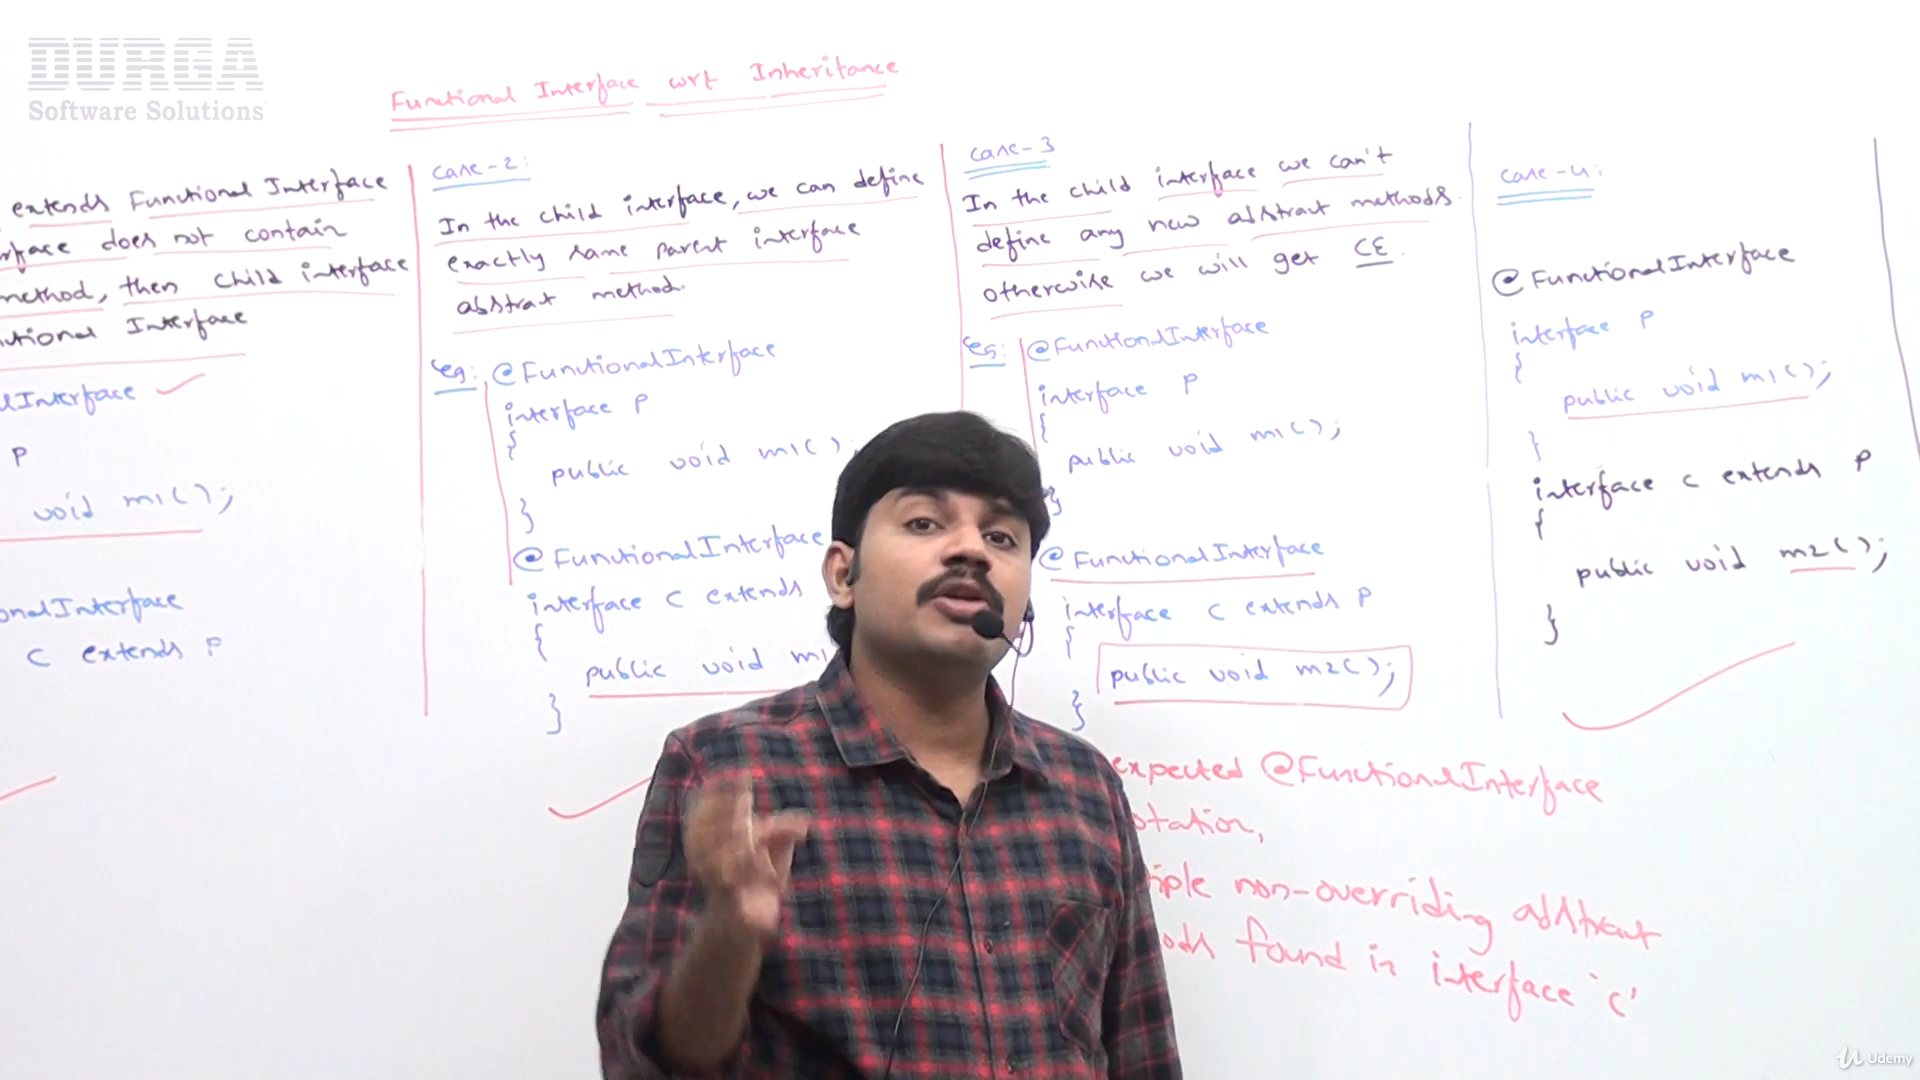 DURGA
Software Solutions
Functional Interface wrt Inheritance
extends Functional Interface
rface does not contain
method, then child interface
Interface
Interface
P
void m1();
Interface
C extends P
case-2:
In the child interface, we can define
exactly same parent interface
abstract method.
eg: @FunctionalInterface
interface P
{
public void m1();
}
@FunctionalInterface
interface C extends
{
public void m1
}
case-3
In the child interface we can't
define any new abstract methods.
otherwise we will get CE.
eg: @FunctionalInterface
interface P
{
public void m1();
}
@FunctionalInterface
interface C extends P
{
public void m2();
}
expected @FunctionalInterface
otation,
iple non-overriding abstract
ods found in interface 'C'
case-4:
@FunctionalInterface
interface P
{
public void m1();
}
interface C extends P
{
public void m2();
}
Udemy